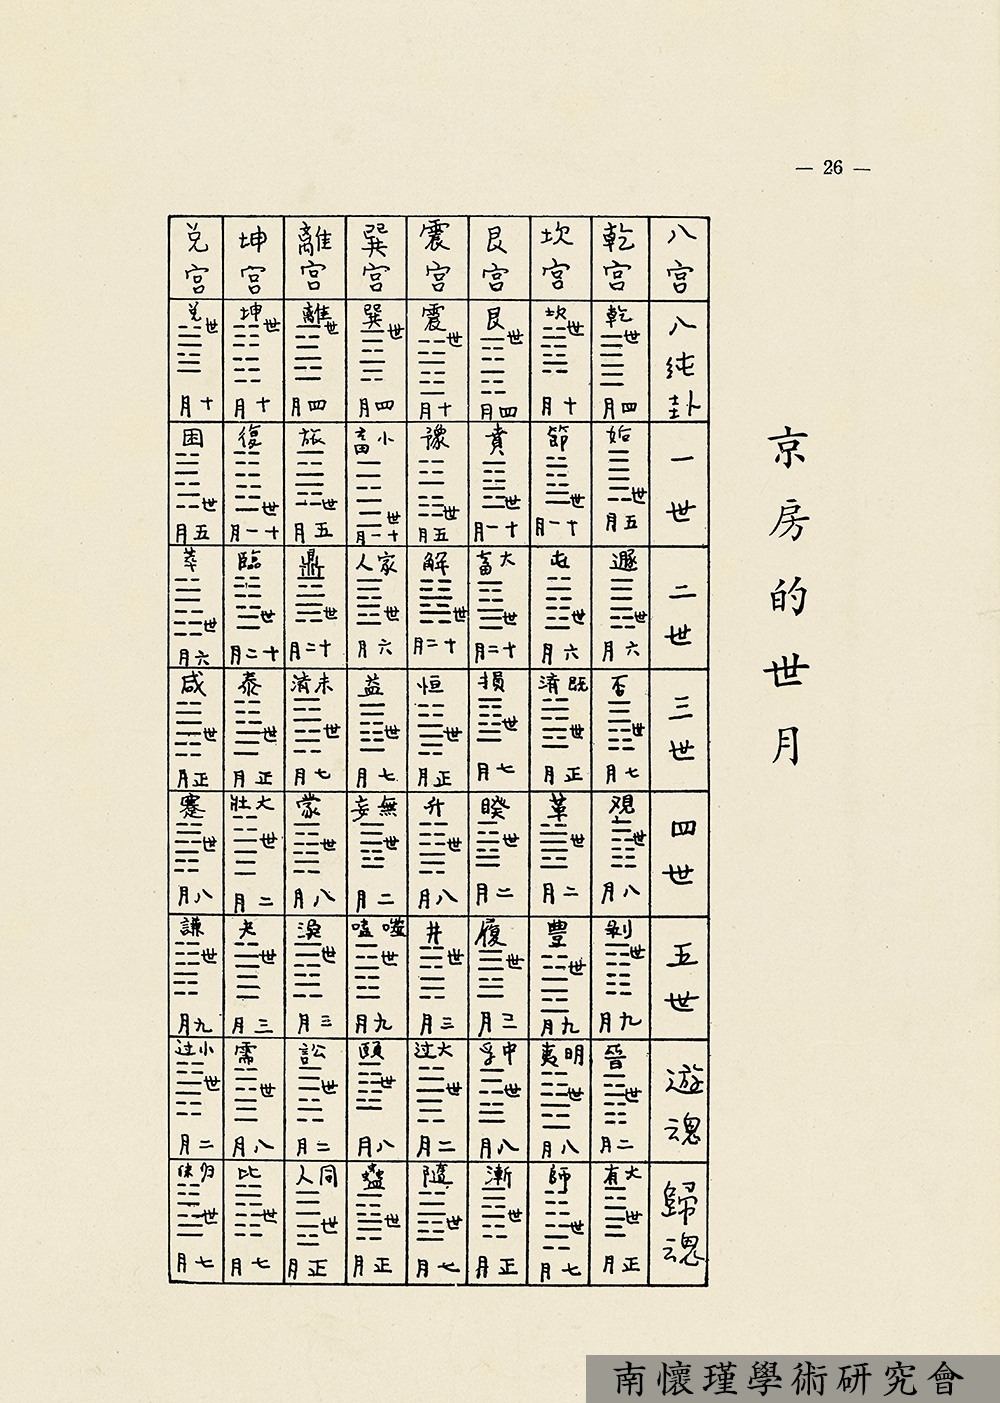 — 26 —
京房的世月
八宮 乾宮 坎宮 艮宮 震宮 巽宮 離宮 坤宮 兑宮
八純卦 乾 世 四月 坎 世 十月 艮 世 四月 震 世 十月 巽 世 四月 離 世 四月 坤 世 十月 兑 世 十月
一世 姤 世 五月 節 世 十一月 賁 世 十一月 豫 世 五月 小畜 世 十一月 旅 世 五月 復 世 十一月 困 世 五月
二世 遯 世 六月 屯 世 六月 大畜 世 十二月 解 世 十二月 家人 世 六月 鼎 世 十二月 臨 世 十二月 萃 世 六月
三世 否 世 七月 既濟 世 正月 損 世 七月 恒 世 正月 益 世 七月 未濟 世 七月 泰 世 正月 咸 世 正月
四世 观 世 八月 革 世 二月 睽 世 二月 升 世 八月 無妄 世 二月 蒙 世 八月 大壯 世 二月 蹇 世 八月
五世 剝 世 九月 豐 世 九月 履 世 三月 井 世 三月 噬嗑 世 九月 渙 世 三月 夬 世 三月 謙 世 九月
遊魂 晉 世 二月 明夷 世 八月 中孚 世 八月 大过 世 二月 頤 世 八月 訟 世 二月 需 世 八月 小过 世 二月
歸魂 大有 世 正月 師 世 七月 漸 世 正月 隨 世 七月 蠱 世 正月 同人 世 正月 比 世 七月 归妹 世 七月
南懷瑾學術研究會